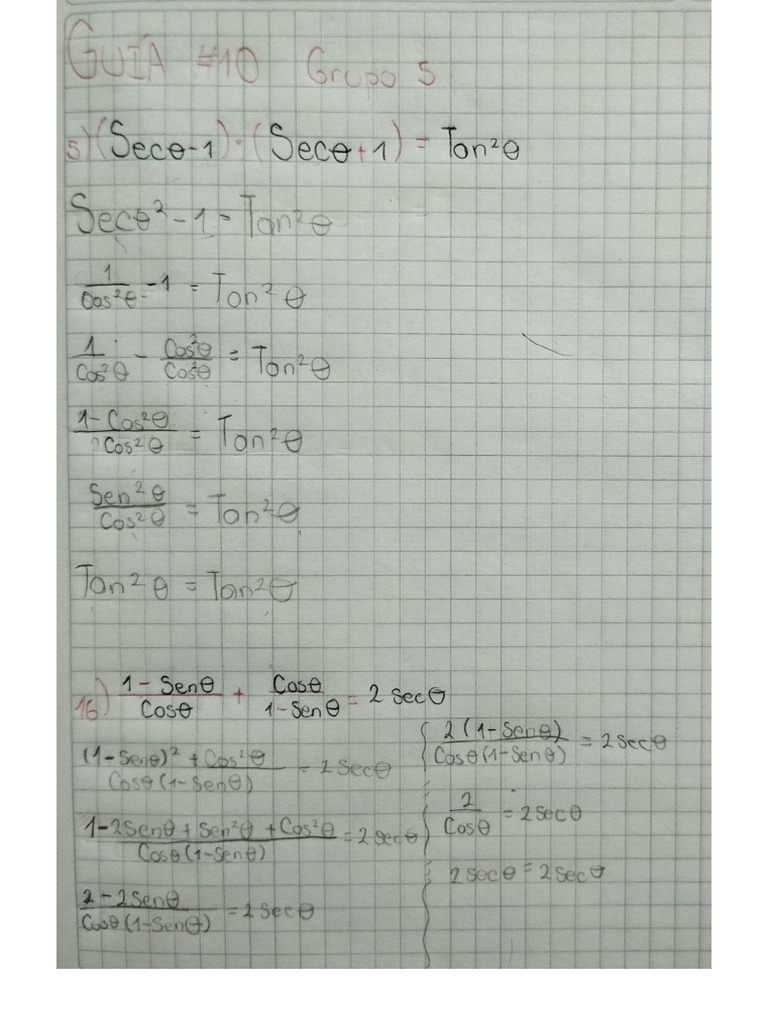 GUIA #10 Grupo 5
5) (Secθ-1)·(Secθ+1) = Tan²θ
Secθ²-1 = Tan²θ
1/Cos²θ - 1 = Tan²θ
1/Cos²θ - Cos²θ/Cos²θ = Tan²θ
1-Cos²θ/Cos²θ = Tan²θ
Sen²θ/Cos²θ = Tan²θ
Tan²θ = Tan²θ
16) 1-Senθ/Cosθ + Cosθ/1-Senθ = 2 Secθ
(1-Senθ)² + Cos²θ/Cosθ(1-Senθ) = 2 Secθ
1-2Senθ + Sen²θ + Cos²θ/Cosθ(1-Senθ) = 2 Secθ
2-2Senθ/Cosθ(1-Senθ) = 2 Secθ
2(1-Senθ)/Cosθ(1-Senθ) = 2 Secθ
2/Cosθ = 2 Secθ
2 Secθ = 2 Secθ